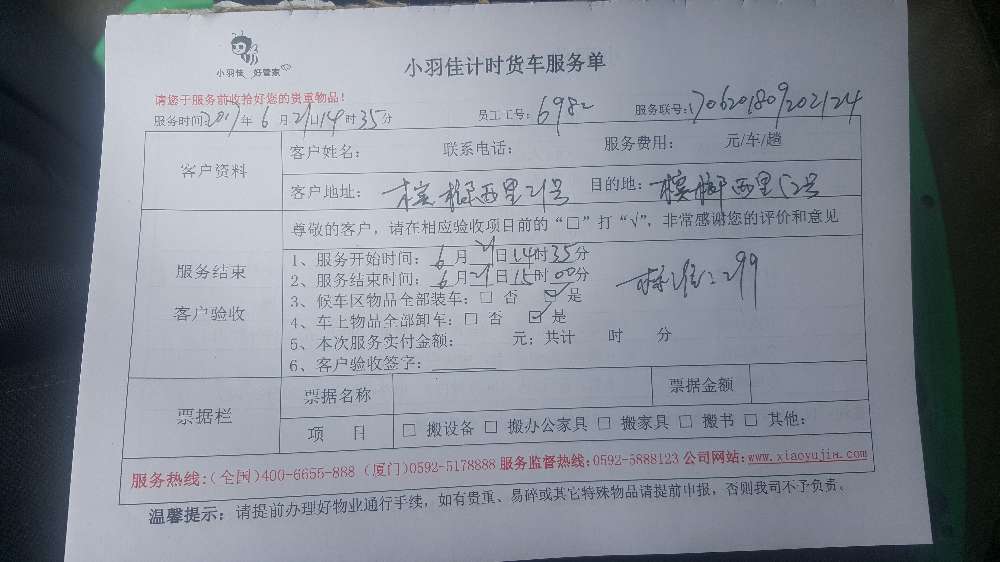 小羽佳 好管家
小羽佳计时货车服务单
请您于服务前收拾好您的贵重物品！
服务时间2017年6月21日14时35分 员工工号：6982 服务联号：1706201809202124
客户资料
客户姓名： 联系电话： 服务费用： 元/车/趟
客户地址：槟榔西里21号 目的地：槟榔西里52号
服务结束
客户验收
尊敬的客户，请在相应验收项目前的“□”打“√”，非常感谢您的评价和意见
1、服务开始时间：6月21日14时35分
2、服务结束时间：6月21日15时00分
标准：299
3、候车区物品全部装车：□ 否 ☑ 是
4、车上物品全部卸车：□ 否 ☑ 是
5、本次服务实付金额： 元；共计 时 分
6、客户验收签字：
票据栏
票据名称 票据金额
项 目 □ 搬设备 □ 搬办公家具 □ 搬家具 □ 搬书 □ 其他：
服务热线：（全国）400-6655-888（厦门）0592-5178888 服务监督热线：0592-5888123 公司网站：www.xiaoyujia.com
温馨提示：请提前办理好物业通行手续，如有贵重、易碎或其它特殊物品请提前申报，否则我司不予负责。